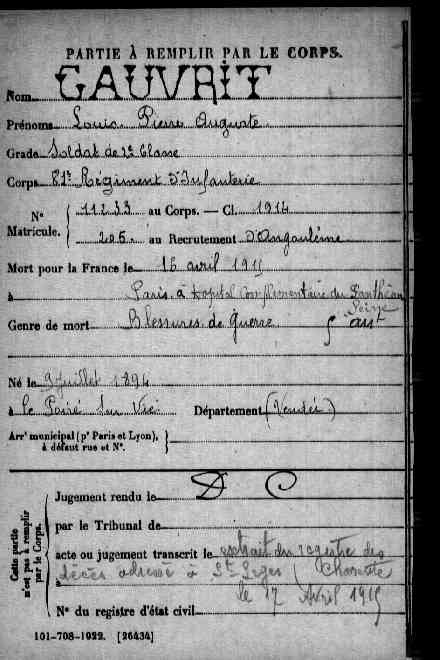 PARTIE À REMPLIR PAR LE CORPS.
Nom GAUVRIT
Prénoms Louis Pierre Auguste
Grade Soldat de 2e Classe
Corps 81e Régiment d'Infanterie
N° Matricule. 11233 au Corps. — Cl. 1914
205. au Recrutement d'Angoulême
Mort pour la France le 16 avril 1915
à Paris. à hopital Complémentaire du Panthéon
Seine
Genre de mort Blessures de Guerre
Né le 9 juillet 1894
à le Poiré sur Vie Département (Vendée)
Arr' municipal (p' Paris et Lyon), à défaut rue et N°.
Cette partie n'est pas à remplir par le Corps.
Jugement rendu le D C
par le Tribunal de
acte ou jugement transcrit le extrait du registre des
décès adressé à St Leger (Charente
le 17 Avril 1915
N° du registre d'état civil
101-708-1922. [26434]